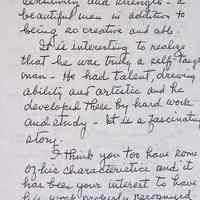 sensitivity and strength - a
beautiful man in addition to
being so creative and able.
It is interesting to realize
that he was truly a self-taught
man - He had talent, drawing
ability and artistic and he
developed these by hard work
and study - It is a fascinating
story.
I think you too have some
of his characteristics and it
has been your interest to have
his work properly recognized